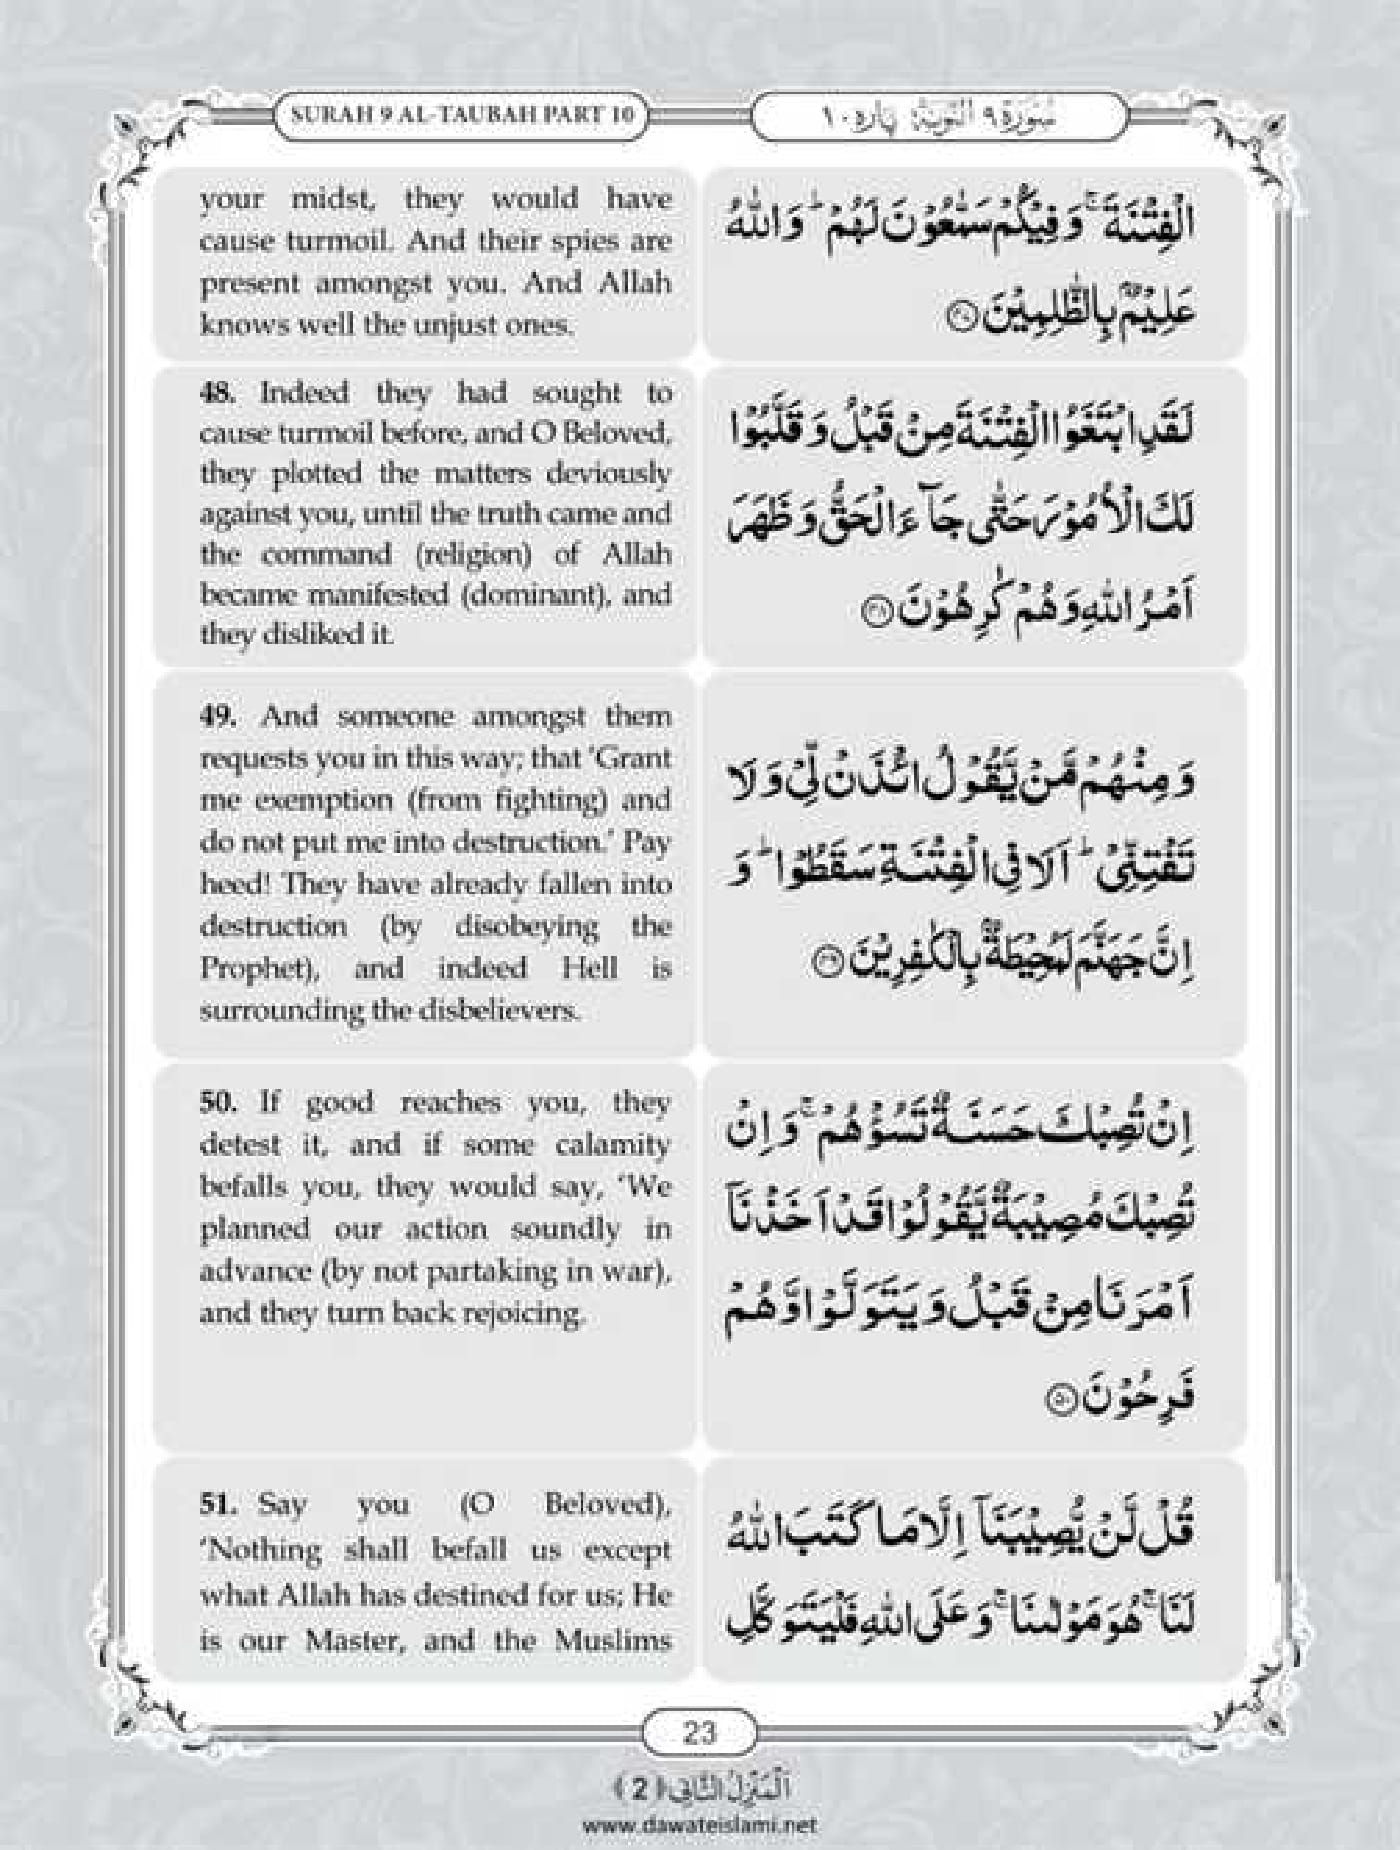 SURAH 9 AL-TAUBAH PART 10
سُوْرَةُ ٩ اَلتَّوْبَةُ پاره ١٠
your midst, they would have
cause turmoil. And their spies are
present amongst you. And Allah
knows well the unjust ones.
الْفِتْنَةَ ۚ وَ فِیْكُمْ سَمّٰعُوْنَ لَهُمْ ؕ وَ اللّٰهُ
عَلِیْمٌۢ بِالظّٰلِمِیْنَ ﴿۴۷﴾
48. Indeed they had sought to
cause turmoil before, and O Beloved,
they plotted the matters deviously
against you, until the truth came and
the command (religion) of Allah
became manifested (dominant), and
they disliked it.
لَقَدِ ابْتَغَوُا الْفِتْنَةَ مِنْ قَبْلُ وَ قَلَّبُوْا
لَكَ الْاُمُوْرَ حَتّٰى جَآءَ الْحَقُّ وَ ظَهَرَ
اَمْرُ اللّٰهِ وَ هُمْ كٰرِهُوْنَ ﴿۴۸﴾
49. And someone amongst them
requests you in this way; that ‘Grant
me exemption (from fighting) and
do not put me into destruction.’ Pay
heed! They have already fallen into
destruction (by disobeying the
Prophet), and indeed Hell is
surrounding the disbelievers.
وَ مِنْهُمْ مَّنْ یَّقُوْلُ ائْذَنْ لِّیْ وَ لَا
تَفْتِنِّیْ ؕ اَلَا فِی الْفِتْنَةِ سَقَطُوْا ؕ وَ
اِنَّ جَهَنَّمَ لَمُحِیْطَةٌۢ بِالْكٰفِرِیْنَ ﴿۴۹﴾
50. If good reaches you, they
detest it, and if some calamity
befalls you, they would say, ‘We
planned our action soundly in
advance (by not partaking in war),
and they turn back rejoicing.
اِنْ تُصِبْكَ حَسَنَةٌ تَسُؤْهُمْ ۚ وَ اِنْ
تُصِبْكَ مُصِیْبَةٌ یَّقُوْلُوْا قَدْ اَخَذْنَاۤ
اَمْرَنَا مِنْ قَبْلُ وَ یَتَوَلَّوْا وَّ هُمْ
فَرِحُوْنَ ﴿۵۰﴾
51. Say you (O Beloved),
‘Nothing shall befall us except
what Allah has destined for us; He
is our Master, and the Muslims
قُلْ لَّنْ یُّصِیْبَنَاۤ اِلَّا مَا كَتَبَ اللّٰهُ
لَنَا ۚ هُوَ مَوْلٰىنَا ۚ وَ عَلَى اللّٰهِ فَلْیَتَوَكَّلِ
23
اَلْمَنْزِلُ الثَّانِی ﴿2﴾
www.dawateislami.net